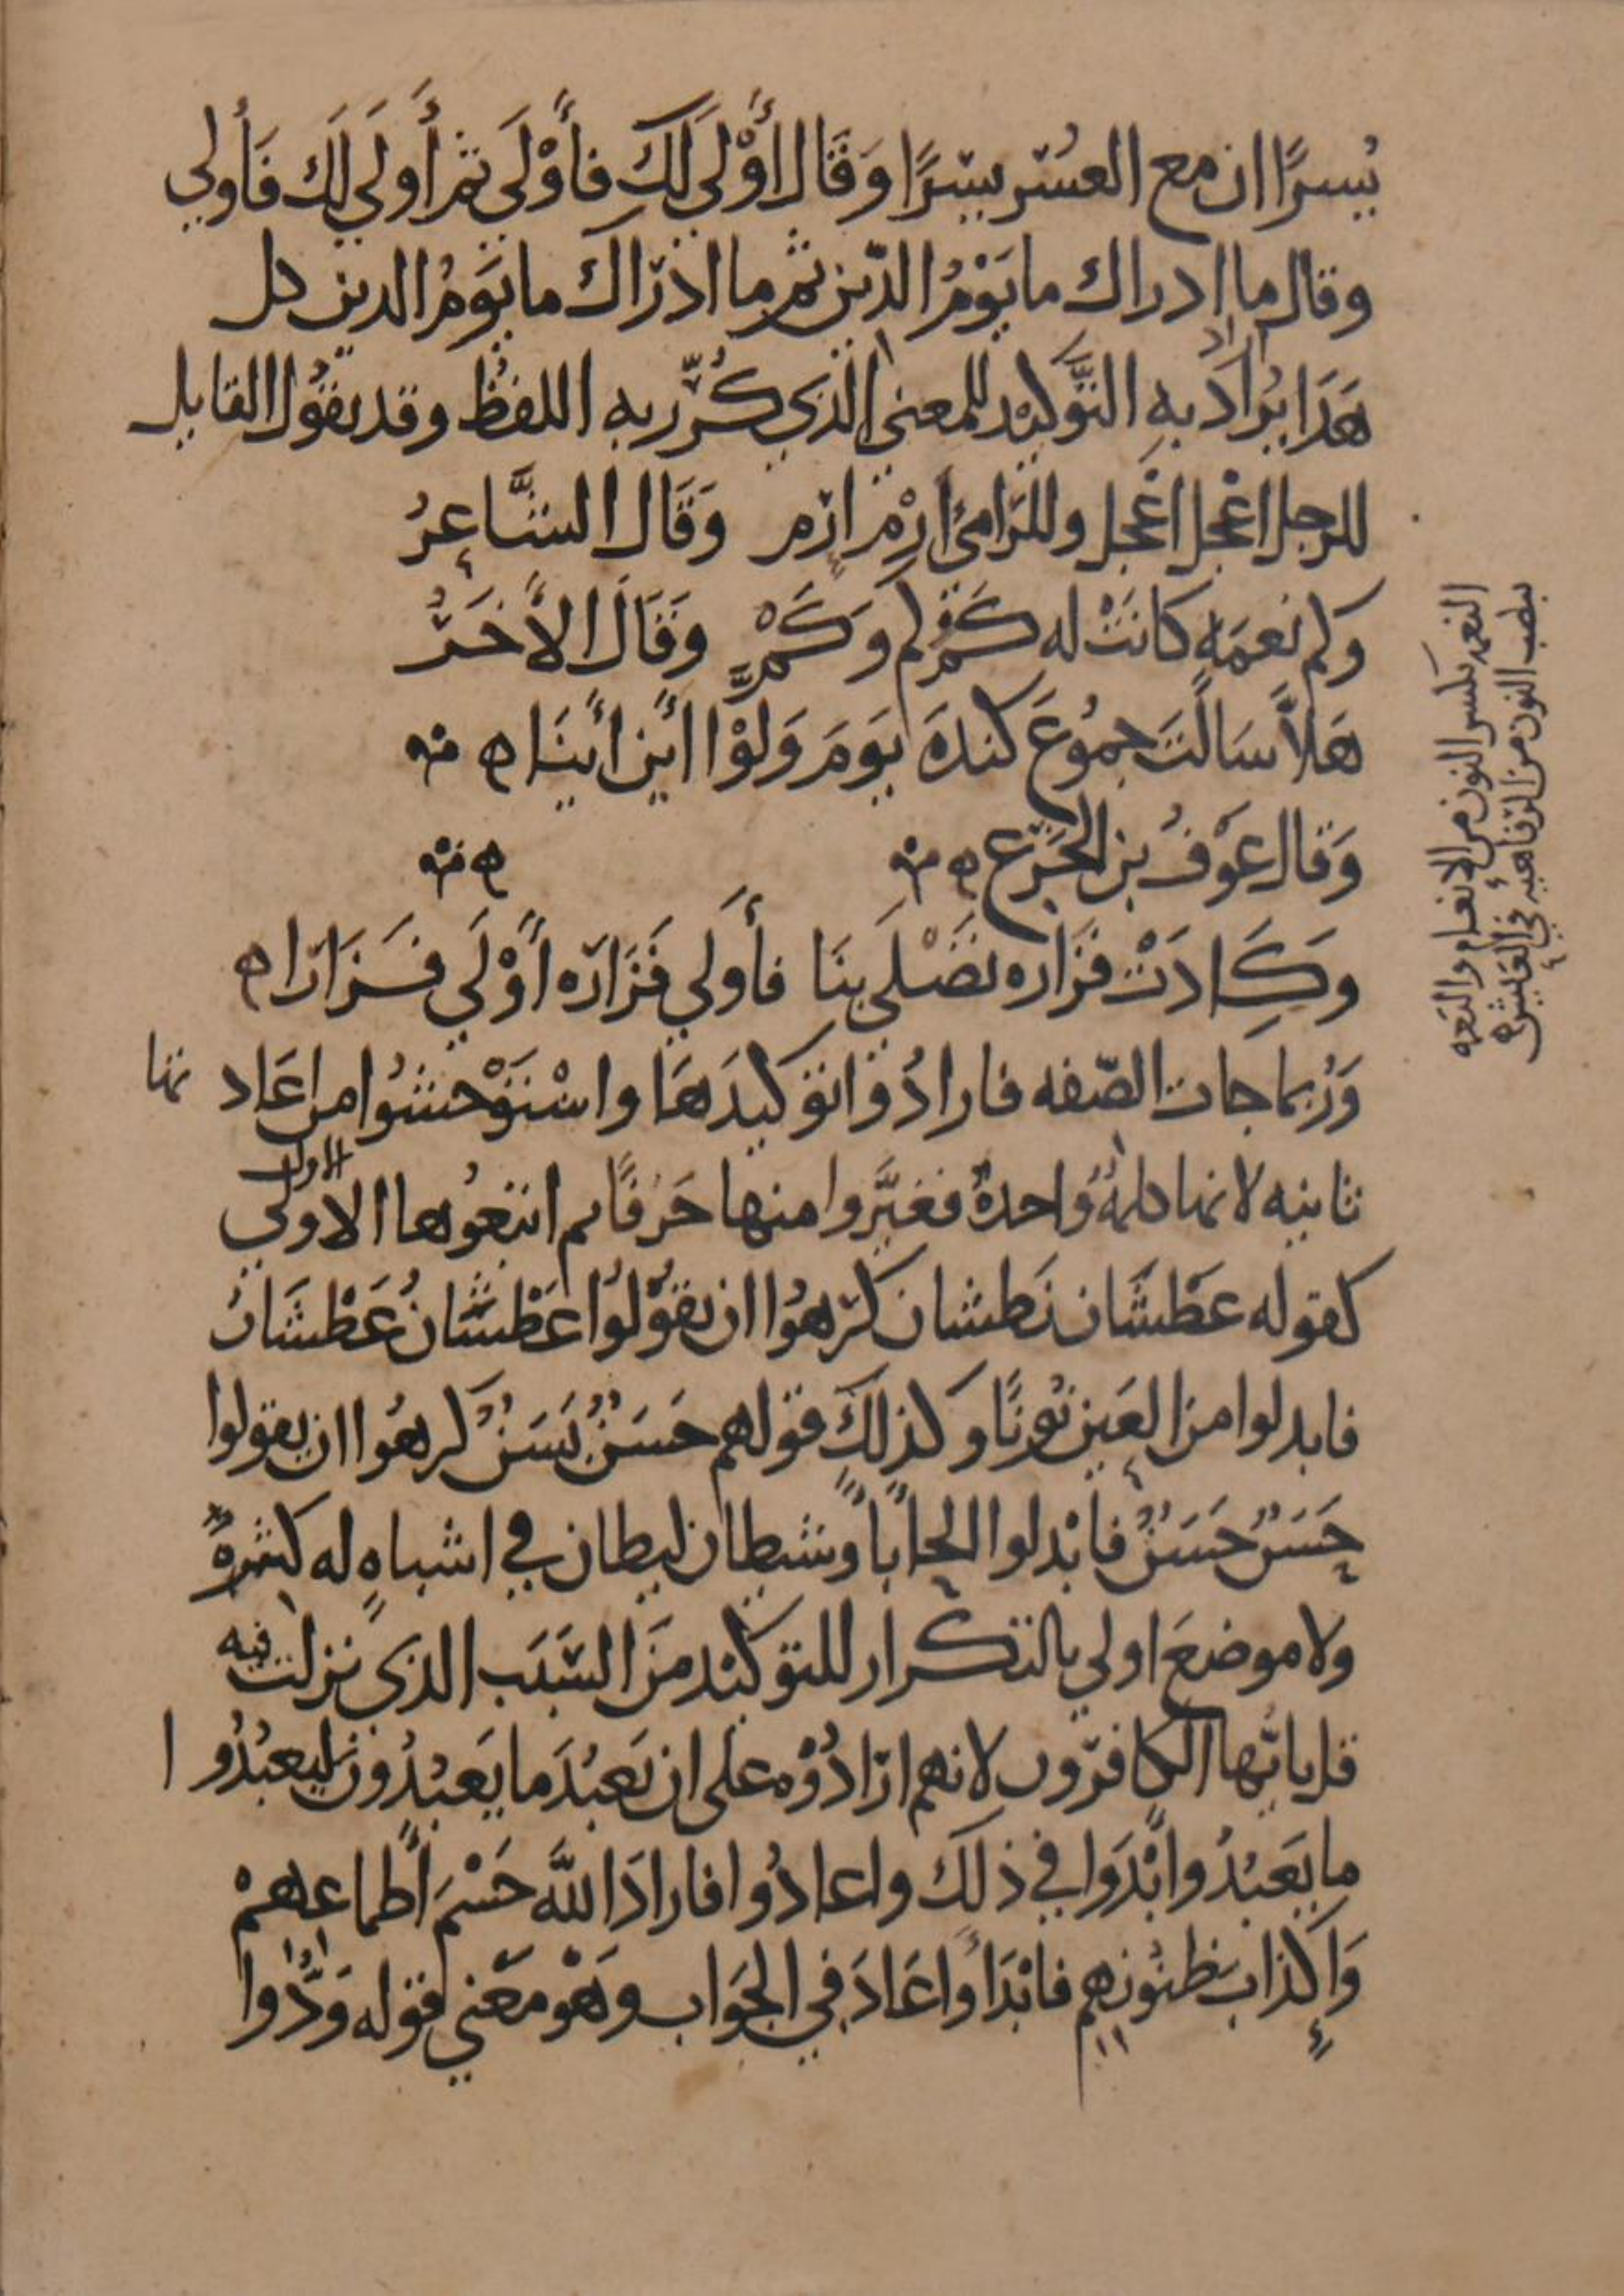 يُسرًا ان مع العُسْر يسْرًا وَقَال أَوْلَى لَكَ فأَوْلَى ثم أَولَى لَك فَأَولي
وقال ما ادراك ما يَوْمُ الدّين ثم ما ادْرَاك ما يَوْمُ الدين كل
هَذَا يُرَادُ بِهِ التَّوكيْد للمعنى الذي كُرِّر بِهِ اللفظُ وقد يقُول القايل
للرجل اعْجل اعْجل وللرّامي ارْمِ ارْم وَقَال الشَّاعِرُ
وكم نعمَهٍ كانَتْ له كَمْ كم وَكَمْ وَقَالَ الأَخَرُ
هَلّا سَالتَ جمُوعَ كندَهَ يَومَ وَلوْا اَيْن أَينَا ه
وَقال عَوْفُ بن الخَرِع ه
وَكَادَتْ فزَاره تَصْلَى بنَا فأَولي فَزَارَه أَوْلَي فَزَارَا ه
وَرُبما جات الصّفه فارادُوا توكيدَهَا واسْتَوْحشُوا من اعَادتها
ثانيه لانها كلمهُ وَاحدهُ فغيَّروا منها حَرْفًا ثم اتبعُوها الاولي
الاول
كقوله عَطْشَان نَطشان كرهوُا ان يقُولُوا عَطْشَانُ عَطْشَانُ
فابدلوا من العَين نُونًا وكذلكَ قولهم حسَنٌ بَسَنٌ كرهُوا ان يقولوا
حَسَنٌ حَسَنٌ فابْدلوا الحا بَاً وشيطان ليطان في اشباهٍ له كثيرهً
ولا موضعَ اولي بالتكرار للتوكيْد منَ السّبَب الذي نزلت فيه
قل يا اَيّها الكافرون لانهم ارَادُوْه على ان يَعبُدَ ما يَعبُدُون ليعبُدُوا
ما يَعبُدُ وابْدَوا في ذلكَ واعادُوا فارادَ اللّهَ حَسْمَ أَطماعهمْ
وَإكذابَ ظنُونهم فابْدَأَ وَاعَادَ في الجَوَاب وهَوْ مَعْني قوله وَدُّوا
النعمه بكسر النون من الانعام والنعمه
بنصب النون من الرفاهيه في العيش ه